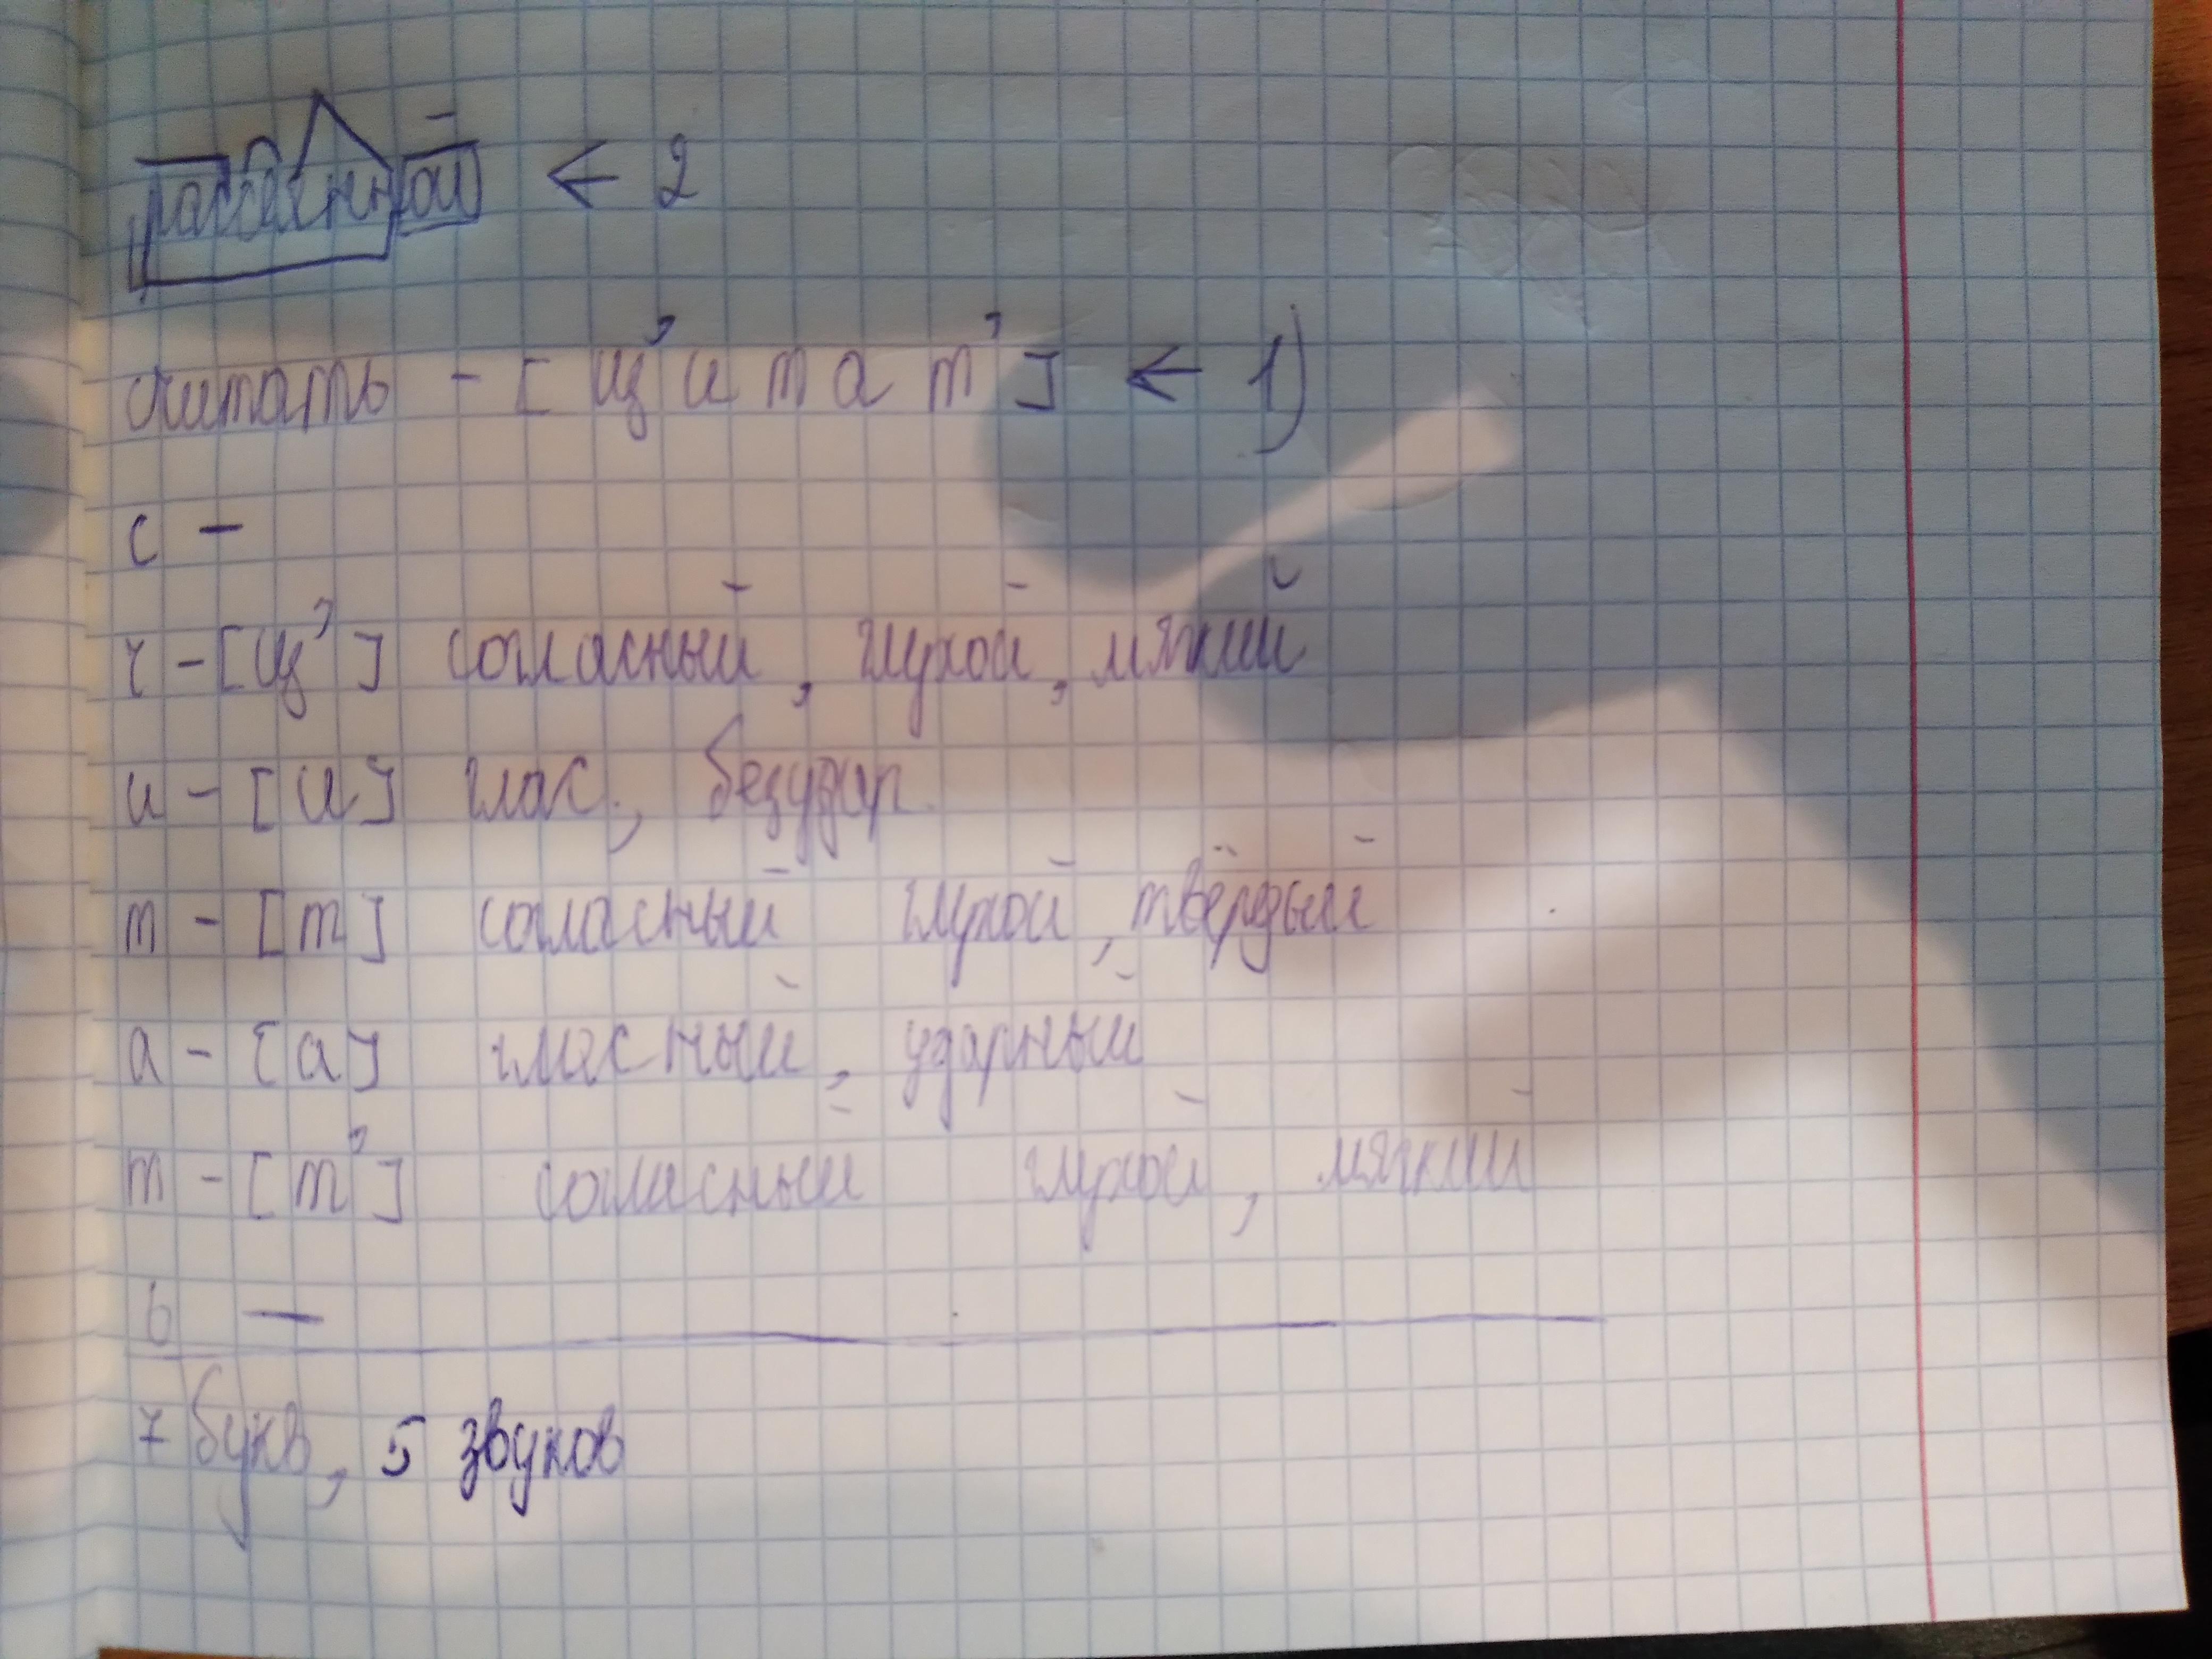 рассеянной ← 2
считать - [ щ' и т а т' ] ← 1)
с -
ч - [щ'] согласный, глухой, мягкий
и - [и] глас., безудар.
т - [т] согласный глухой, твёрдый
а - [а] гласный, ударный
т - [т'] согласный глухой, мягкий
ь -
7 букв, 5 звуков